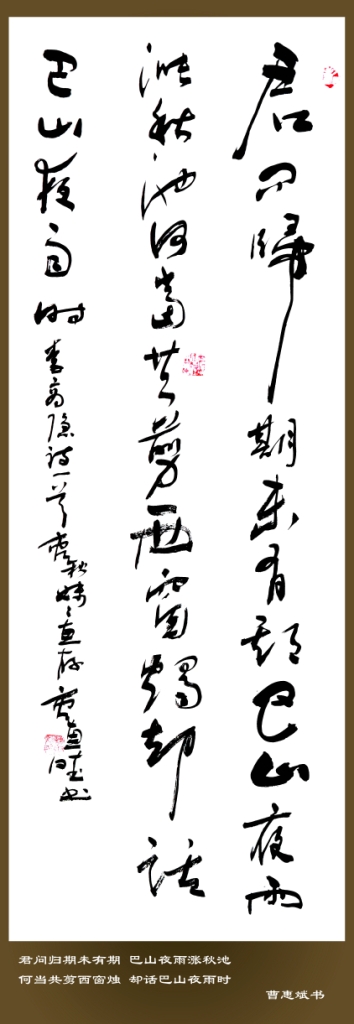 君问歸期未有期巴山夜雨
涨秋池何當共剪西窗燭却話
巴山夜雨时 李商隐诗一首
君问归期未有期 巴山夜雨涨秋池
何当共剪西窗烛 却话巴山夜雨时
曹惠斌书